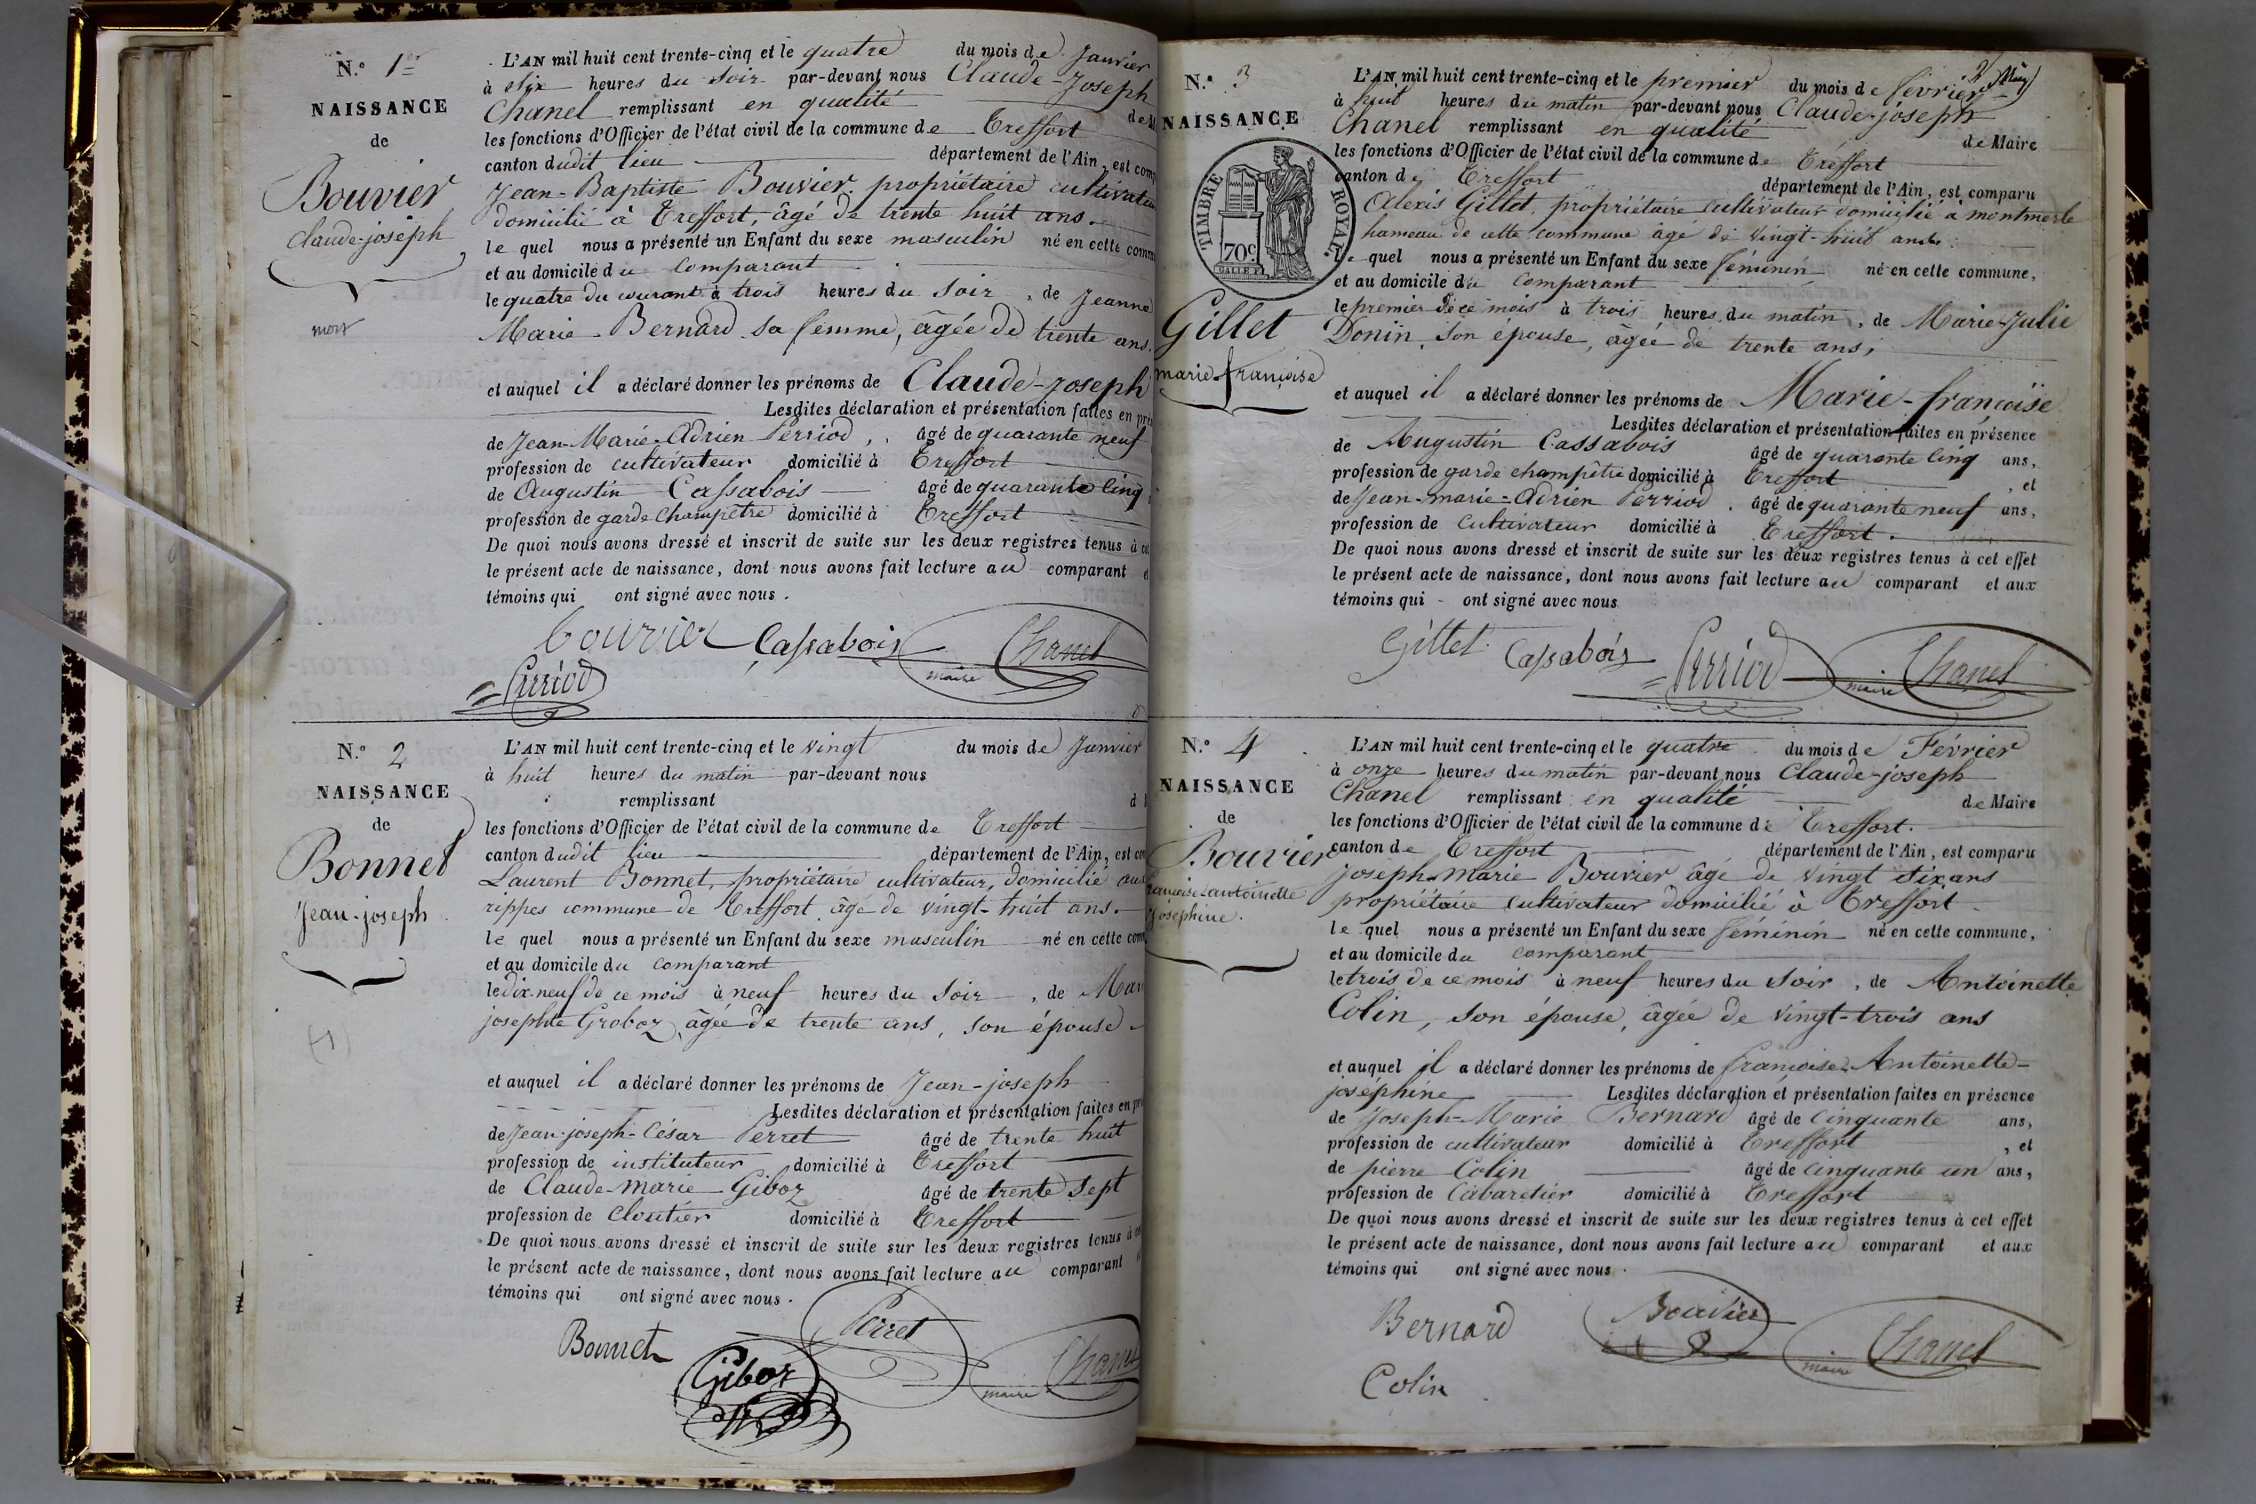 N.º 1er
NAISSANCE
de
Bouvier
Claude-joseph
mort
L'AN mil huit cent trente-cinq et le quatre du mois de Janvier
à six heures du soir par-devant nous Claude-Joseph
Chanel remplissant en qualité de
les fonctions d'Officier de l'état civil de la commune de Treffort
canton dudit lieu département de l'Ain, est comp
Jean-Baptiste Bouvier propriétaire cultivateur
domicilié à Treffort, âgé de trente huit ans.
le quel nous a présenté un Enfant du sexe masculin né en cette comm
et au domicile du comparant
le quatre du courant à trois heures du soir, de Jeanne
Marie Bernard sa femme, âgée de trente ans.
et auquel il a déclaré donner les prénoms de Claude-Joseph
Lesdites déclaration et présentation faites en pré
de Jean-Marie-Adrien Perriod, âgé de quarante neuf
profession de cultivateur domicilié à Treffort
de Augustin Cassabois âgé de quarante cinq
profession de garde champêtre domicilié à Treffort
De quoi nous avons dressé et inscrit de suite sur les deux registres tenus à ce
le présent acte de naissance, dont nous avons fait lecture au comparant e
témoins qui ont signé avec nous.
bouvier Cassabois maire Chanel
Perriod
N.º 2
NAISSANCE
de
Bonnet
Jean-joseph
(1)
L'AN mil huit cent trente-cinq et le vingt du mois de Janvier
à huit heures du matin par-devant nous
remplissant d
les fonctions d'Officier de l'état civil de la commune de Treffort
canton dudit lieu département de l'Ain, est com
Laurent Bonnet, propriétaire cultivateur, domicilié aux
rippes commune de Treffort âgé de vingt-huit ans.
le quel nous a présenté un Enfant du sexe masculin né en cette com
et au domicile du comparant
le dix neuf de ce mois à neuf heures du soir, de Mari
josephte Groboz, âgée de trente ans, son épouse
et auquel il a déclaré donner les prénoms de Jean-joseph
Lesdites déclaration et présentation faites en pré
de Jean-joseph-César Perret âgé de trente huit
profession de instituteur domicilié à Treffort
de Claude-Marie Giboz âgé de trente sept
profession de cloutier domicilié à Treffort
De quoi nous avons dressé et inscrit de suite sur les deux registres tenus à ce
le présent acte de naissance, dont nous avons fait lecture au comparant
témoins qui ont signé avec nous.
Bonnet Perret
Giboz maire Chanel
2
N.º 3
NAISSANCE
TIMBRE ROYAL.
70c
Gillet
marie-françoise
L'AN mil huit cent trente-cinq et le premier du mois de février
à huit heures du matin par-devant nous Claude-joseph
Chanel remplissant en qualité de Maire
les fonctions d'Officier de l'état civil de la commune de Tréffort
canton de Treffort département de l'Ain, est comparu
Alexis Gillet, propriétaire cultivateur domicilié à montmerle
hameau de cette commune âgé de vingt-huit ans
le quel nous a présenté un Enfant du sexe féminin né en cette commune,
et au domicile du comparant
le premier de ce mois à trois heures du matin, de Marie-Julie
Donin, son épouse, âgée de trente ans;
et auquel il a déclaré donner les prénoms de Marie-françoise
Lesdites déclaration et présentation faites en présence
de Augustin Cassabois âgé de quarante cinq ans,
profession de garde champêtre domicilié à Treffort, et
de Jean-marie-Adrien Perriod. âgé de quarante neuf ans,
profession de cultivateur domicilié à Treffort.
De quoi nous avons dressé et inscrit de suite sur les deux registres tenus à cet effet
le présent acte de naissance, dont nous avons fait lecture au comparant et aux
témoins qui ont signé avec nous
Gillet Cassabois Perriod maire Chanel
N.º 4
NAISSANCE
de
Bouvier
françoise antoinette
Josephine.
L'AN mil huit cent trente-cinq et le quatre du mois de Février
à onze heures du matin par-devant nous Claude-joseph
Chanel remplissant en qualité de Maire
les fonctions d'Officier de l'état civil de la commune de Treffort.
canton de Treffort département de l'Ain, est comparu
Joseph-Marie Bouvier âgé de vingt six ans
propriétaire cultivateur domicilié à Treffort.
le quel nous a présenté un Enfant du sexe féminin né en cette commune,
et au domicile du comparant
le trois de ce mois à neuf heures du soir, de Antoinette
Colin, son épouse, âgée de vingt-trois ans
et auquel il a déclaré donner les prénoms de françoise-Antoinette-
joséphine Lesdites déclaration et présentation faites en présence
de Joseph-Marie Bernard âgé de cinquante ans,
profession de cultivateur domicilié à Treffort, et
de pierre Colin âgé de cinquante un ans,
profession de Cabaretier domicilié à Treffort
De quoi nous avons dressé et inscrit de suite sur les deux registres tenus à cet effet
le présent acte de naissance, dont nous avons fait lecture au comparant et aux
témoins qui ont signé avec nous.
Bernard Bouvier maire Chanel
Colin